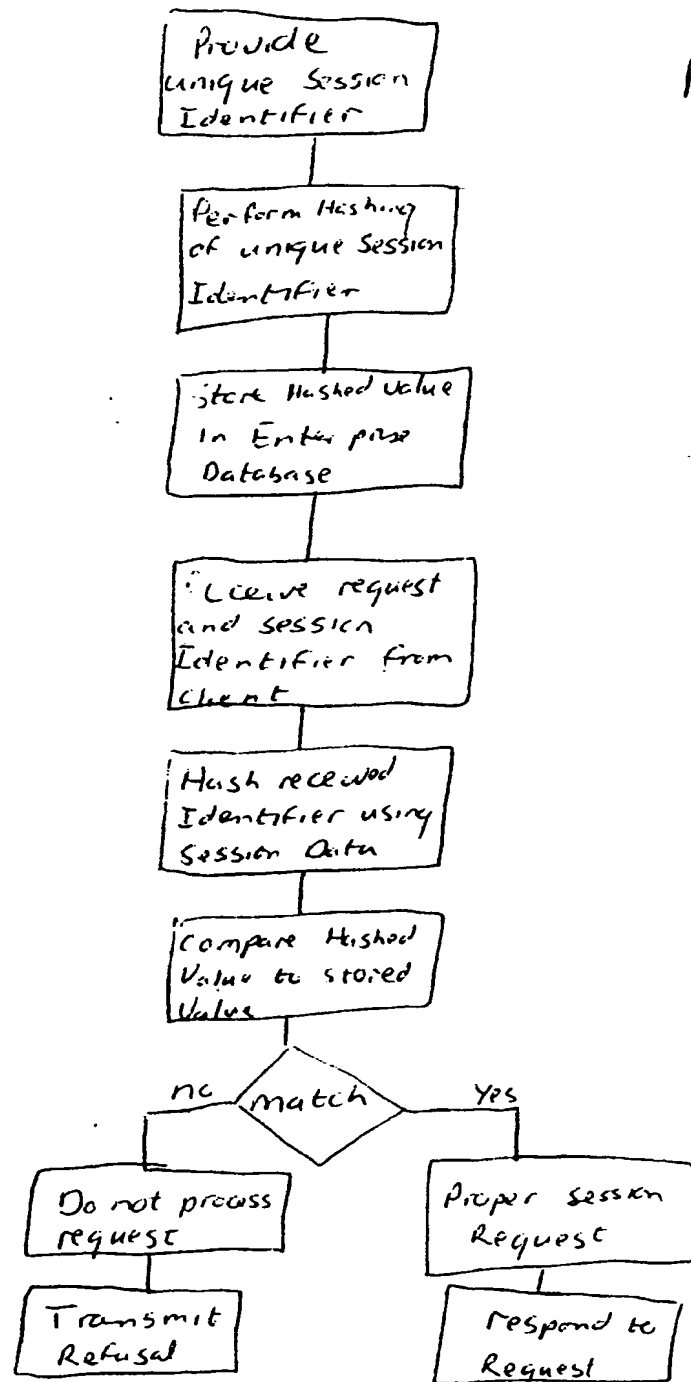 Provide
unique Session
Identifier
Perform Hashing
of unique Session
Identifier
Store Hashed Value
In Enterprise
Database
Receive request
and session
Identifier from
client
Hash received
Identifier using
Session Data
Compare Hashed
Value to stored
Value
match
no
Yes
Do not process
request
Proper session
Request
Transmit
Refusal
respond to
Request